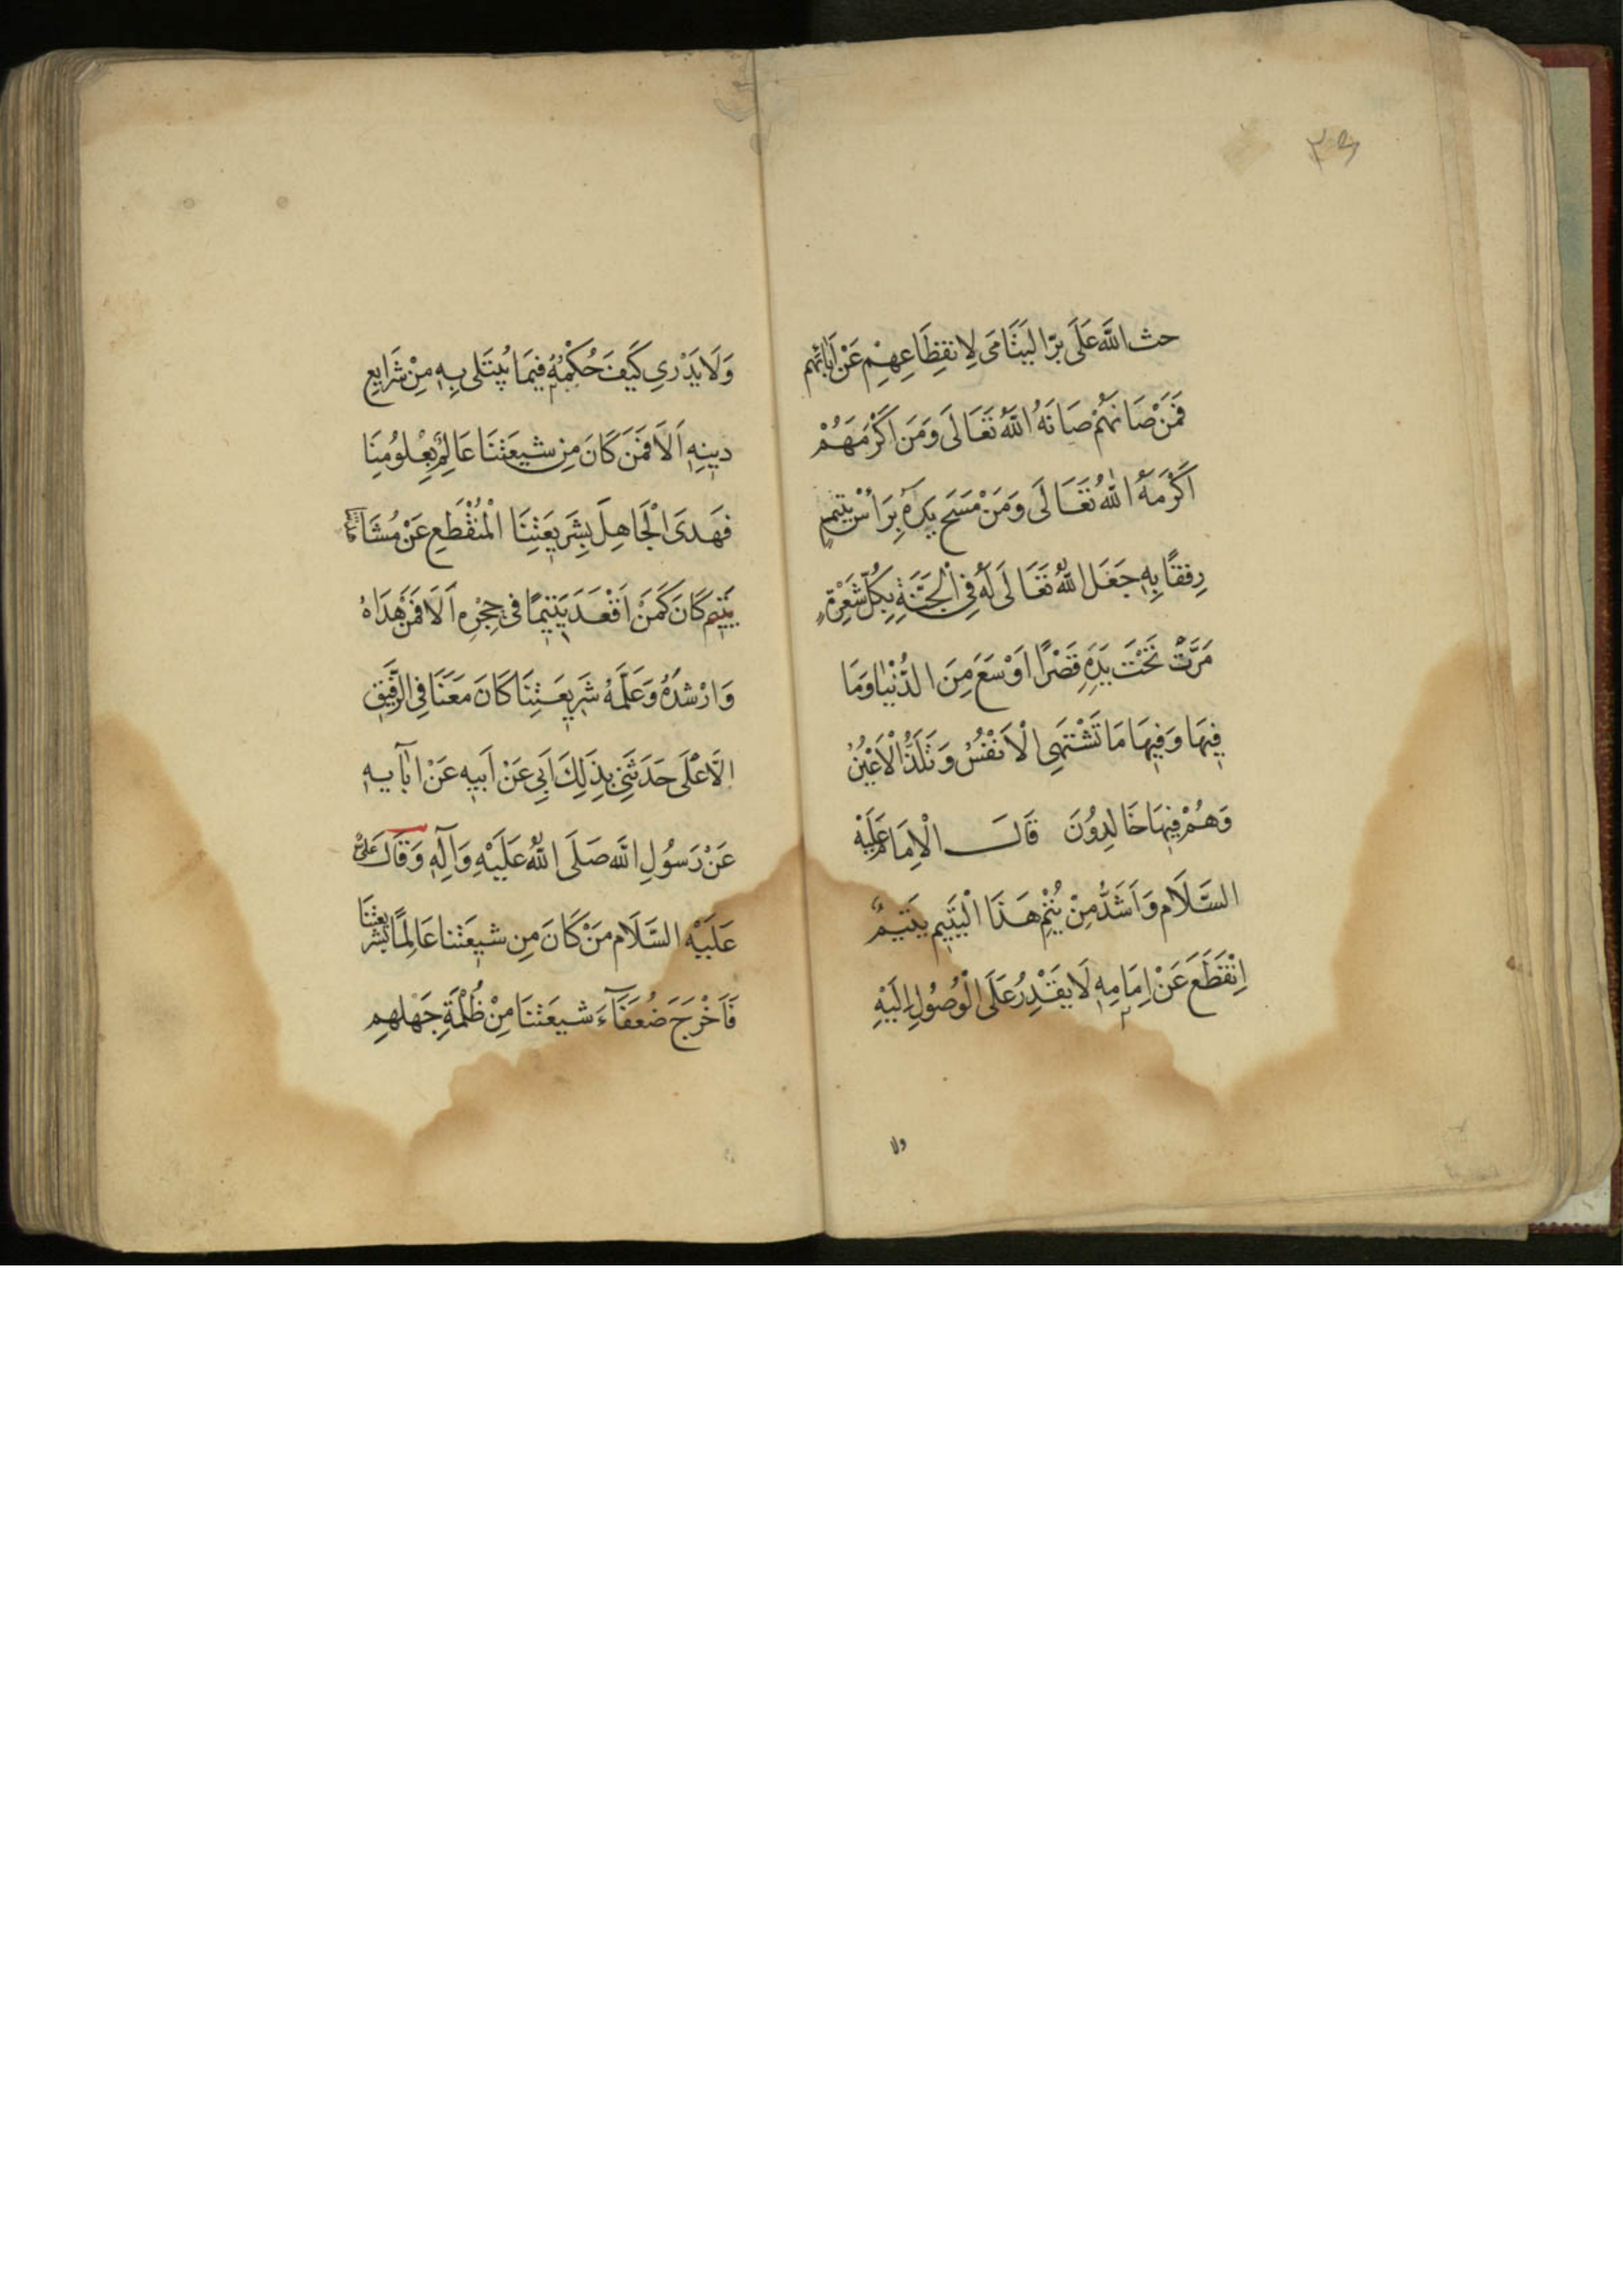 ٣٩
حث الله عَلَى بِرّ اليَتَامَى لِانقِطَاعِهِمْ عَنْ آبَائِهِم
فَمَنْ صَانَهُمْ صَانَهُ اللهُ تَعَالَى وَمَن اَكْرَمَهُمْ
اَكْرَمَهُ اللهُ تَعَالَى وَمَنْ مَسَحَ يَدَهُ بِرَأسِ يَتِيمٍ
رِفقًا بِهِ جَعَل اللهُ تَعَالَى لَهُ فِي الْجَنَّةِ بِكُلِّ شَعْرَةٍ
مَرَّتْ تَحْتَ يَدِهِ قَصْرًا اَوْسَعَ مِنَ الدُّنْيا وَمَا
فِيهَا وَفِيهَا مَا تَشْتَهِي الْاَنْفُسُ وَتَلَذُّ الْاَعْيُنُ
وَهُمْ فِيهَا خَالِدُونَ قَالَ الْاِمَام عَلَيْه
السَّلَام وَاَشَدُّ مِنْ يُتْمِ هَذَا الْيَتِيم يَتِيمٌ
اِنْقَطَعَ عَنْ اِمَامِهِ لَا يَقْدِرُ عَلَى الْوُصُولِ اِلَيْهِ
ولا
وَلَا يَدْرِي كَيفَ حُكْمُهُ فِيمَا يُبْتَلى بِهِ مِنْ شَرَايِعِ
دينِهِ اَلَا فَمَنَ كَانَ مِن شيعَتنَا عَالِمٌ بِعُلُومِنَا
فَهَدَى الْجَاهِلَ بِشَرِيعَتِنَا الْمُنْقَطِعِ عَنْ مُشَاهَدَتِنَا
يَتِيم كَانَ كَمَنْ اَقْعَدَ يَتِيمًا في حِجْرِهِ اَلَا فَمَنْ هَدَاهُ
وَارْشدَهُ وَعَلَّمَهُ شَرِيعَتِنَا كَانَ مَعَنَا فِي الرَّفِيقِ
الَاعْلَى حَدَثَني بِذَلِكَ اَبِي عَنْ اَبيهِ عَنْ اٰبآيهِ
عَنْ رَسُولِ الله صَلَى اللهُ عَلَيْهِ وَاٰلِهِ وَقَالَ عَلِىٌّ
عَلَيْهِ السَّلَام مَنْ كَانَ مِن شيعَتنا عَالِمًا بشَريعَتنَا
فَاَخْرَجَ ضُعَفَآءَ شيعَتنَا مِنْ ظُلْمَةِ جَهْلهِم